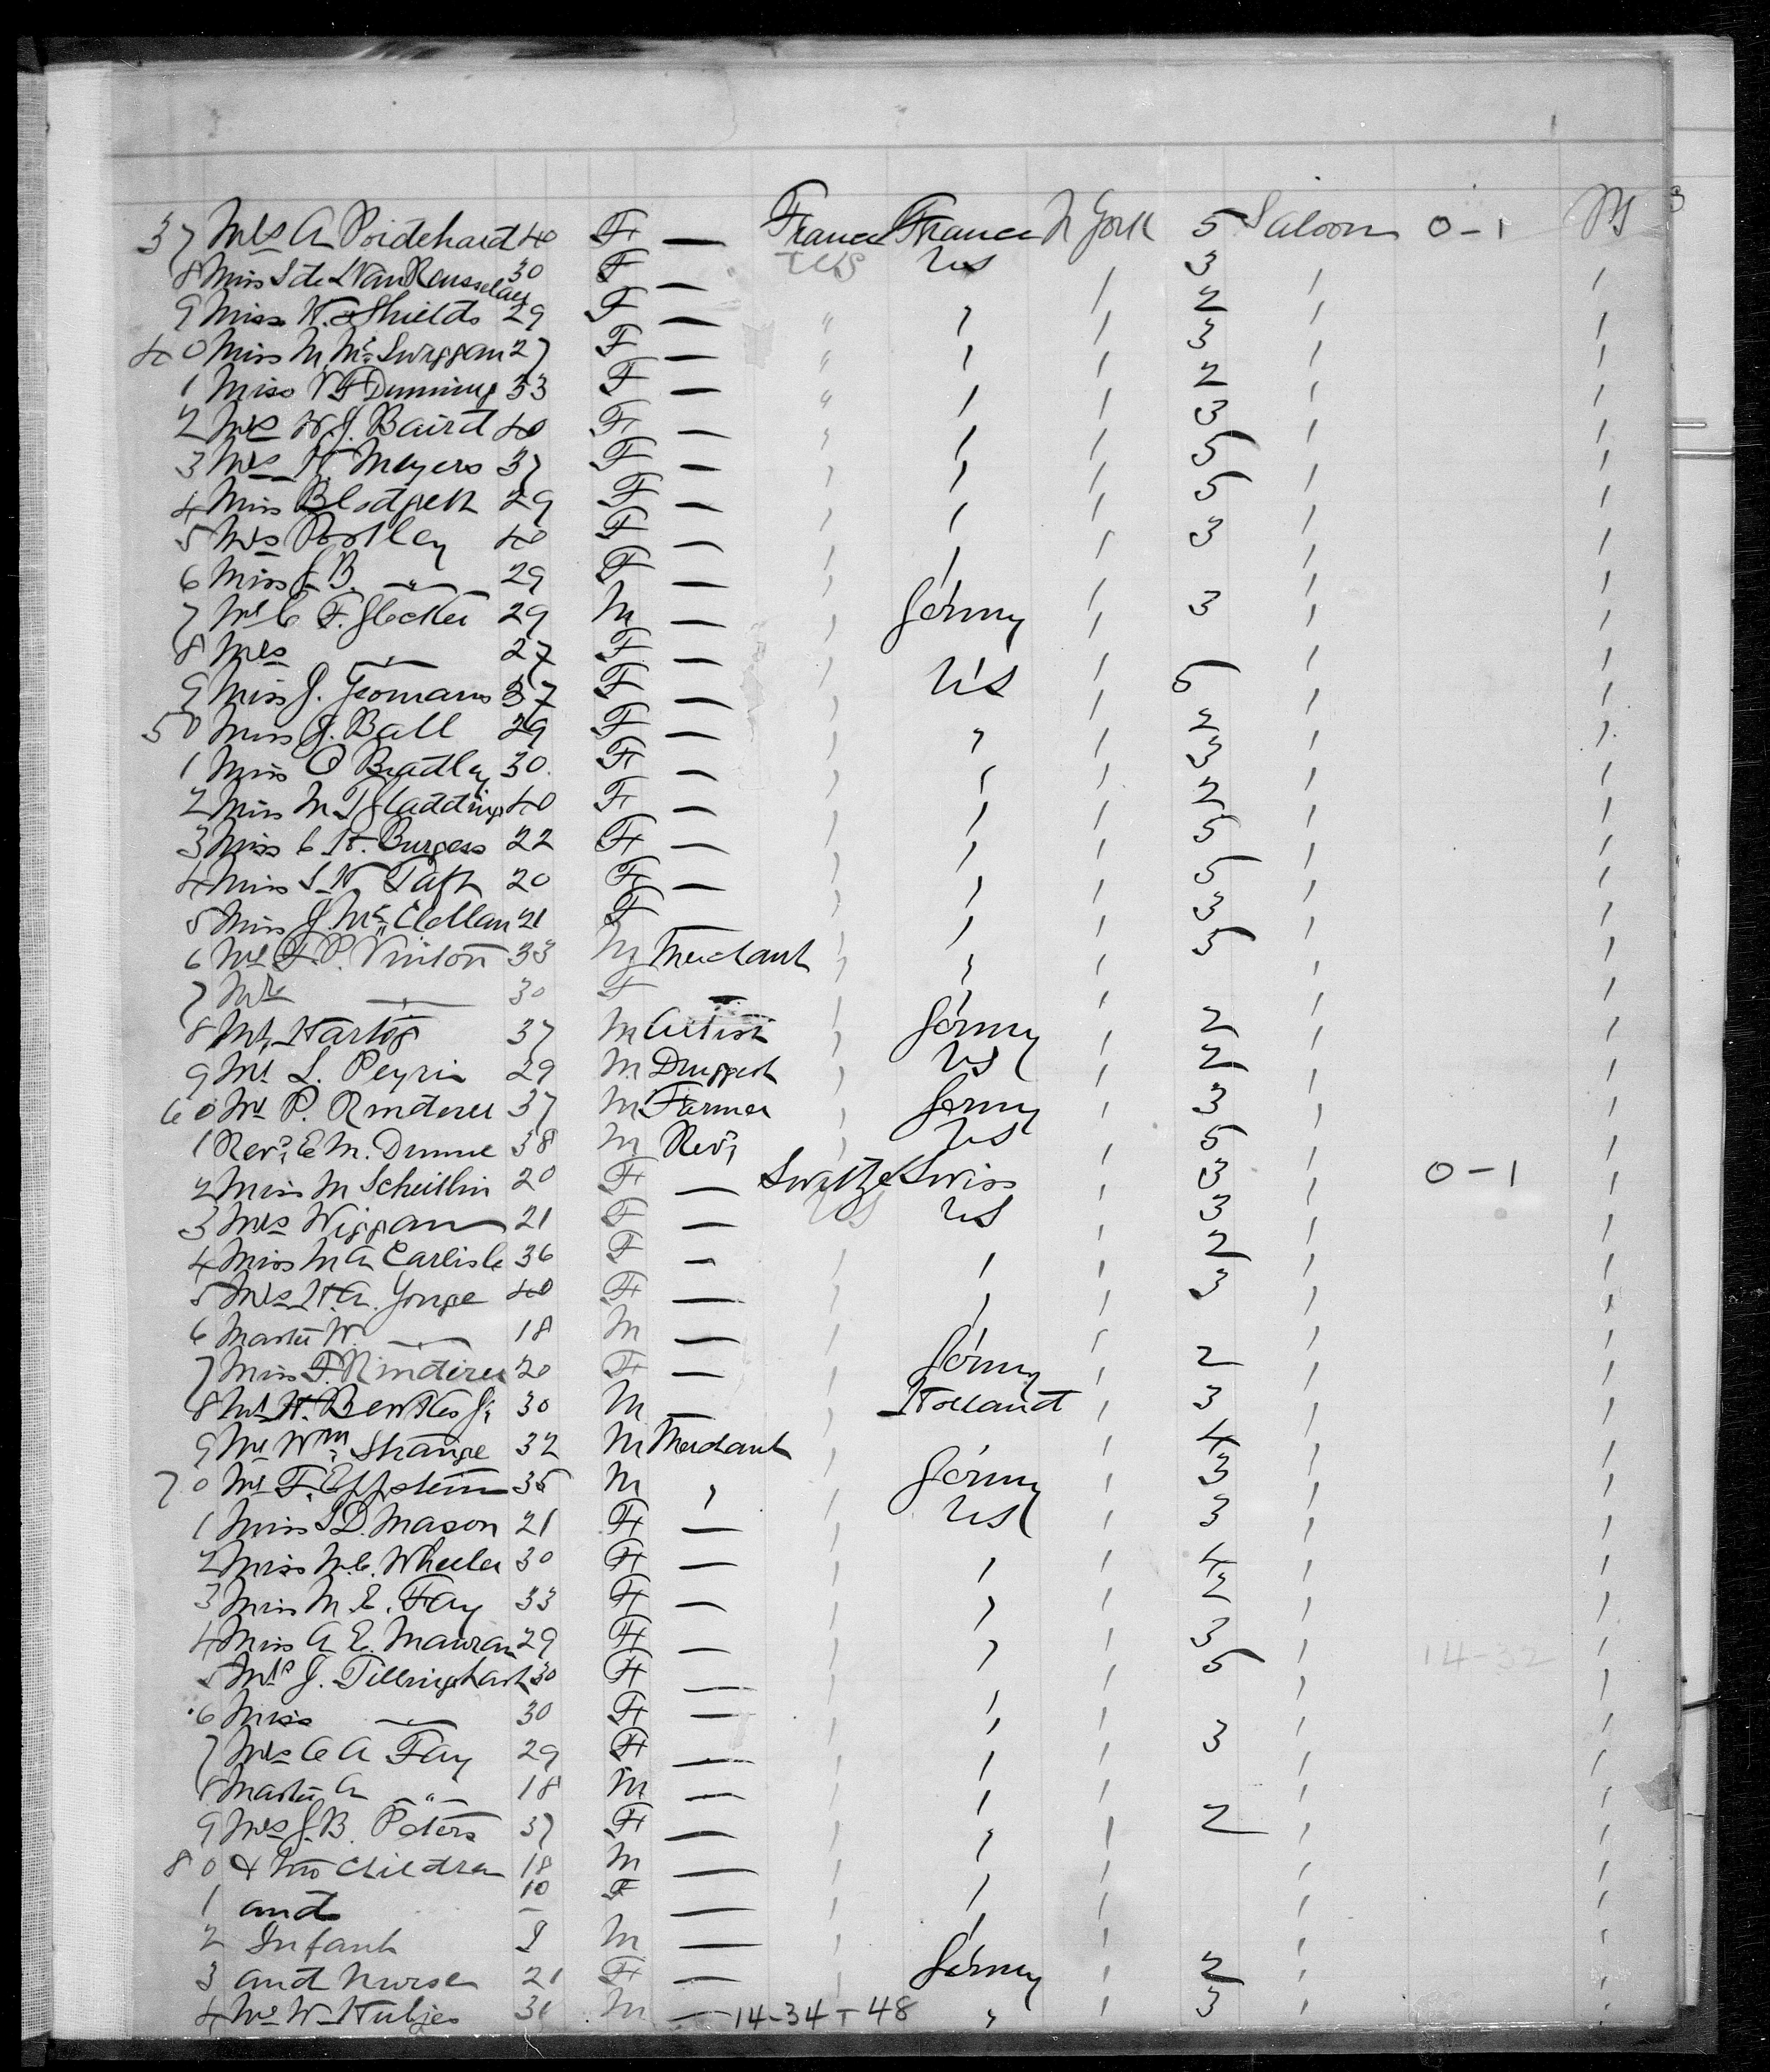 37 Mrs A Poidehard 40 F — France France N York 5 Saloon 0-1
8 Miss S de L Van Rensselaer 30 F — US US / 3 / /
9 Miss H. Shields 29 F — " " / 2 / /
40 Miss M. Mc Swiggan 27 F — " / / 3 / /
1 Miss V F Dunning 33 F — " / / 2 / /
2 Mrs W. J. Baird 40 F — / / / 3 / /
3 Mrs H. Meyers 37 F — / / / 5 / /
4 Miss Blodgett 29 F — / / / 5 / /
5 Mrs Portley 40 F — / / / 3 / /
6 Miss J B. —"— 29 F — / / / / /
7 Mr C F. Glocker 29 M — / Germy / 3 / /
8 Mrs —"— 27 F — / / / / /
9 Miss J. Yeomans 37 F — / US / 5 / /
50 Miss J. Ball 29 F — / " / 2 / /
1 Miss O Bradley 30. F — / / / 3 / /
2 Miss M T Gladding 40 F — / / / 2 / /
3 Miss C H. Burgess 22 F — / / / 5 / /
4 Miss S W Taft 20 F — / / / 5 / /
5 Miss J. Mc Clellan 21 F / / / 3 / /
6 Mr F. P. Vinton 33 M Merchant / / / 5 / /
7 Mrs —"— 30 F — / / / / /
8 Mr, Hartog 37 M Artist / Germy / 2 / /
9 Mr L. Peyrin 29 M Druggist / US / 2 / /
60 Mr P. Rinderer 37 M Farmer / Germy / 3 / /
1 Rev? E M. Dunne 38 M Rev? / US / 5 / /
2 Miss M Scheitlin 20 F — Switze Swiss / 3 / 0-1 /
3 Mrs Wiggan 21 F — US US / 3 / /
4 Miss M A Carlisle 36 F — / / / 2 / /
5 Mrs H. A. Yonge 40 F — / / / 3 / /
6 Master W. —"— 18 M — / / / / /
7 Miss F. Rinderer 20 F — / Germy / 2 / /
8 Mr H. Bentkes Jr 30 M — / Holland / 3 / /
9 Mr Wm Strange 32 M Merchant / / / 4 / /
70 Mr F. Eppstein 35 M " / Germy / 3 / /
1 Miss S D. Mason 21 F — / US / 3 / /
2 Miss M. C. Wheeler 30 F — / / / 4 / /
3 Miss M. E. Fay 33 F — / / / 2 / /
4 Miss A E. Mauran 29 F — / / / 3 / 14-32 /
5 Mrs J. Tillinghast 30 F — / / / 5 / /
6 Miss —"— 30 F — / / / / /
7 Mrs C A Fay 29 F — / / / 3 / /
8 Master A —"— 18 M — / / / / /
9 Mrs J. B. Peters 37 F — / / / 2 / /
80 & two Children 18 M — / / / / /
1 and 10 F — / / / / /
2 Infant M — / / / / /
3 and Nurse 21 F — / Germy / 2 / /
4 Mr W Hubjes 31 M — 14-34 T 48 " / 3 / /